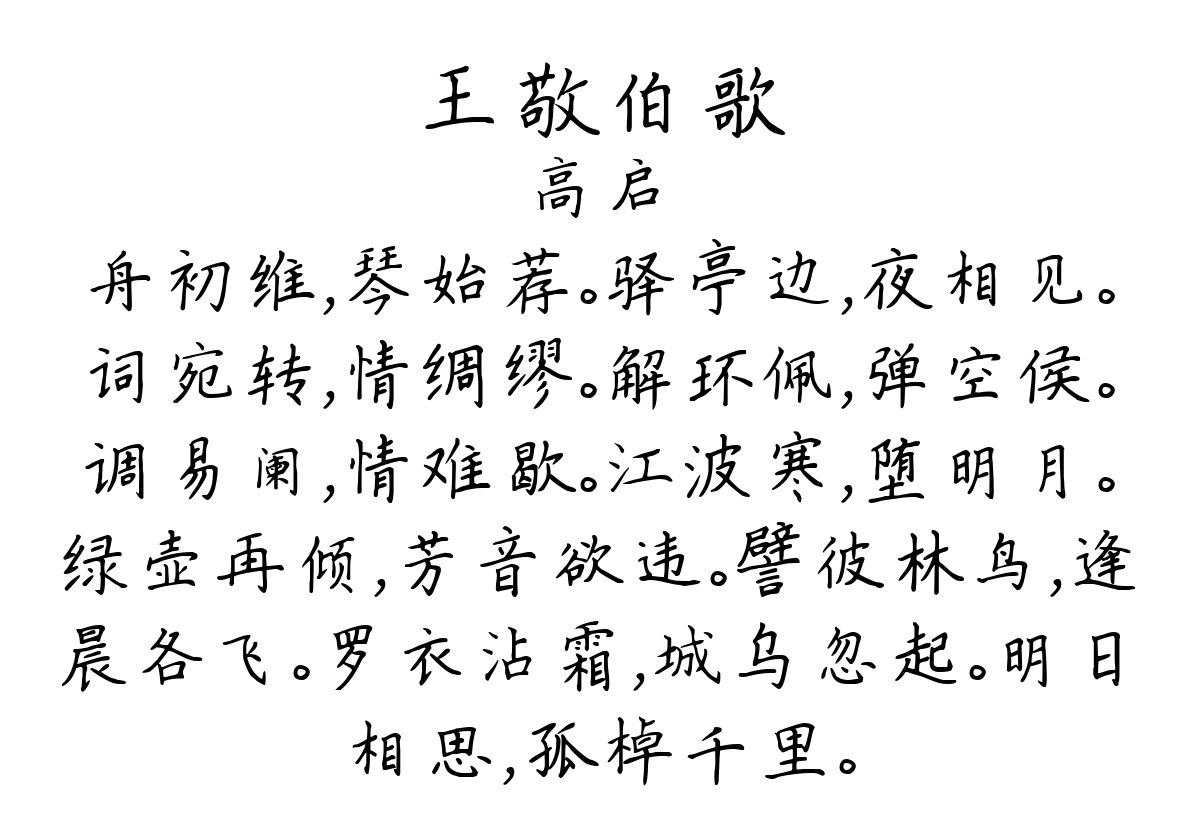 王敬伯歌
高启
舟初维,琴始荐。驿亭边,夜相见。
词宛转,情绸缪。解环佩,弹空侯。
调易阑,情难歇。江波寒,堕明月。
绿壶再倾,芳音欲违。譬彼林鸟,逢
晨各飞。罗衣沾霜,城乌忽起。明日
相思,孤棹千里。